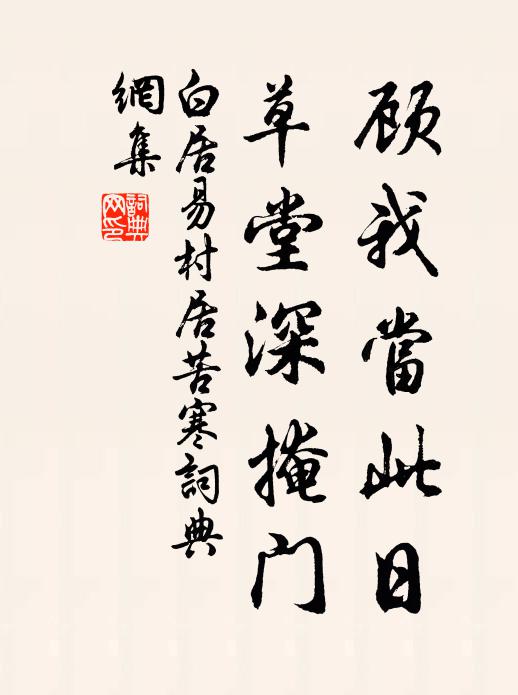 顾我當此日
草堂深掩门
白居易村居苦寒詞典
網集
詞典
网印